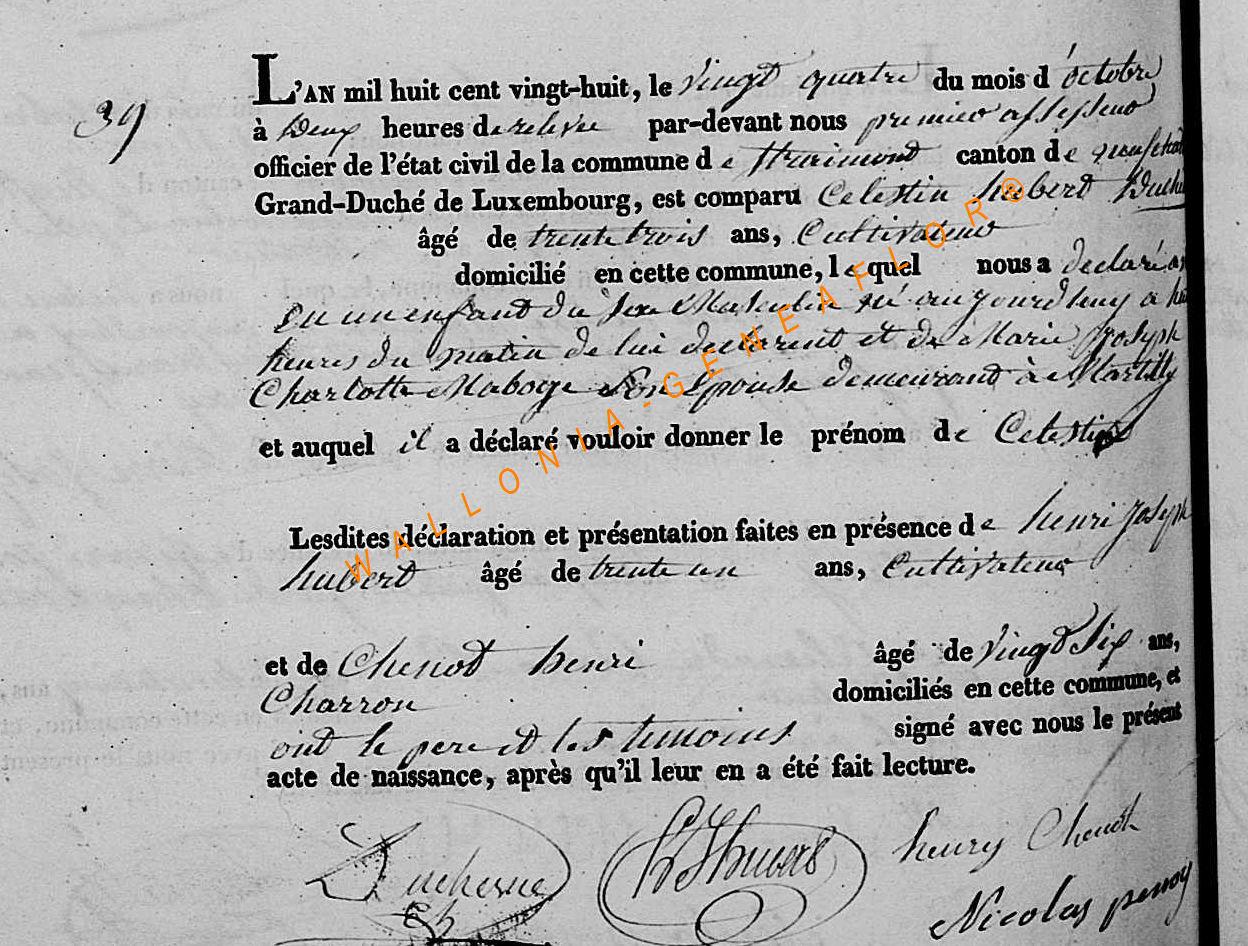 39
L'AN mil huit cent vingt-huit, le vingt quatre du mois d'octobre
à deux heures de relevée par-devant nous premier assesseur
officier de l'état civil de la commune de Straimont canton de neufchat
Grand-Duché de Luxembourg, est comparu Celestin hubert Duche
âgé de trente trois ans, Cultivateur
domicilié en cette commune, le quel nous a declaré
un enfant du sexe Masculin né aujourd'huy a
heures du matin de lui declarent et de Marie Joseph
Charlotte Maboge Son Epouse demeurant à Martilly
et auquel il a déclaré vouloir donner le prénom de Celestin
Lesdites déclaration et présentation faites en présence de henri Joseph
hubert âgé de trente un ans, Cultivateur
et de Chenot henri âgé de vingt six ans,
Charron domiciliés en cette commune, et
ont le pere et les temoins signé avec nous le présent
acte de naissance, après qu'il leur en a été fait lecture.
Duchesne
henry Chenot
Nicolas
WALLONIA-GENEAFLOR®